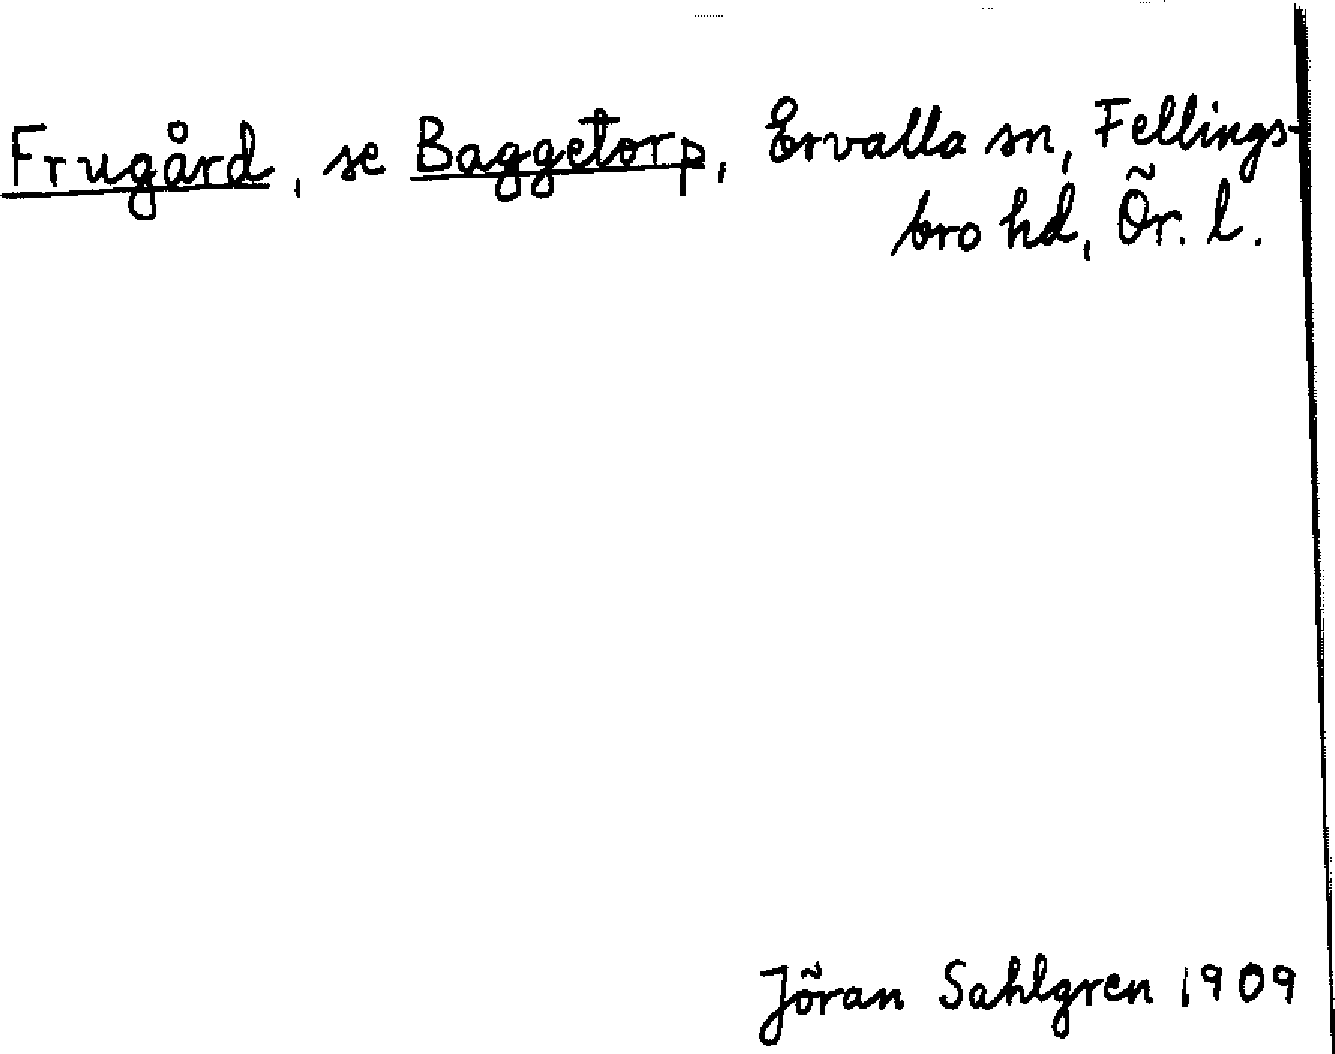 Frugård, se Baggetorp, Ervalla sn, Fellings-
bro hd, Ör. l.
Jöran Sahlgren 1909